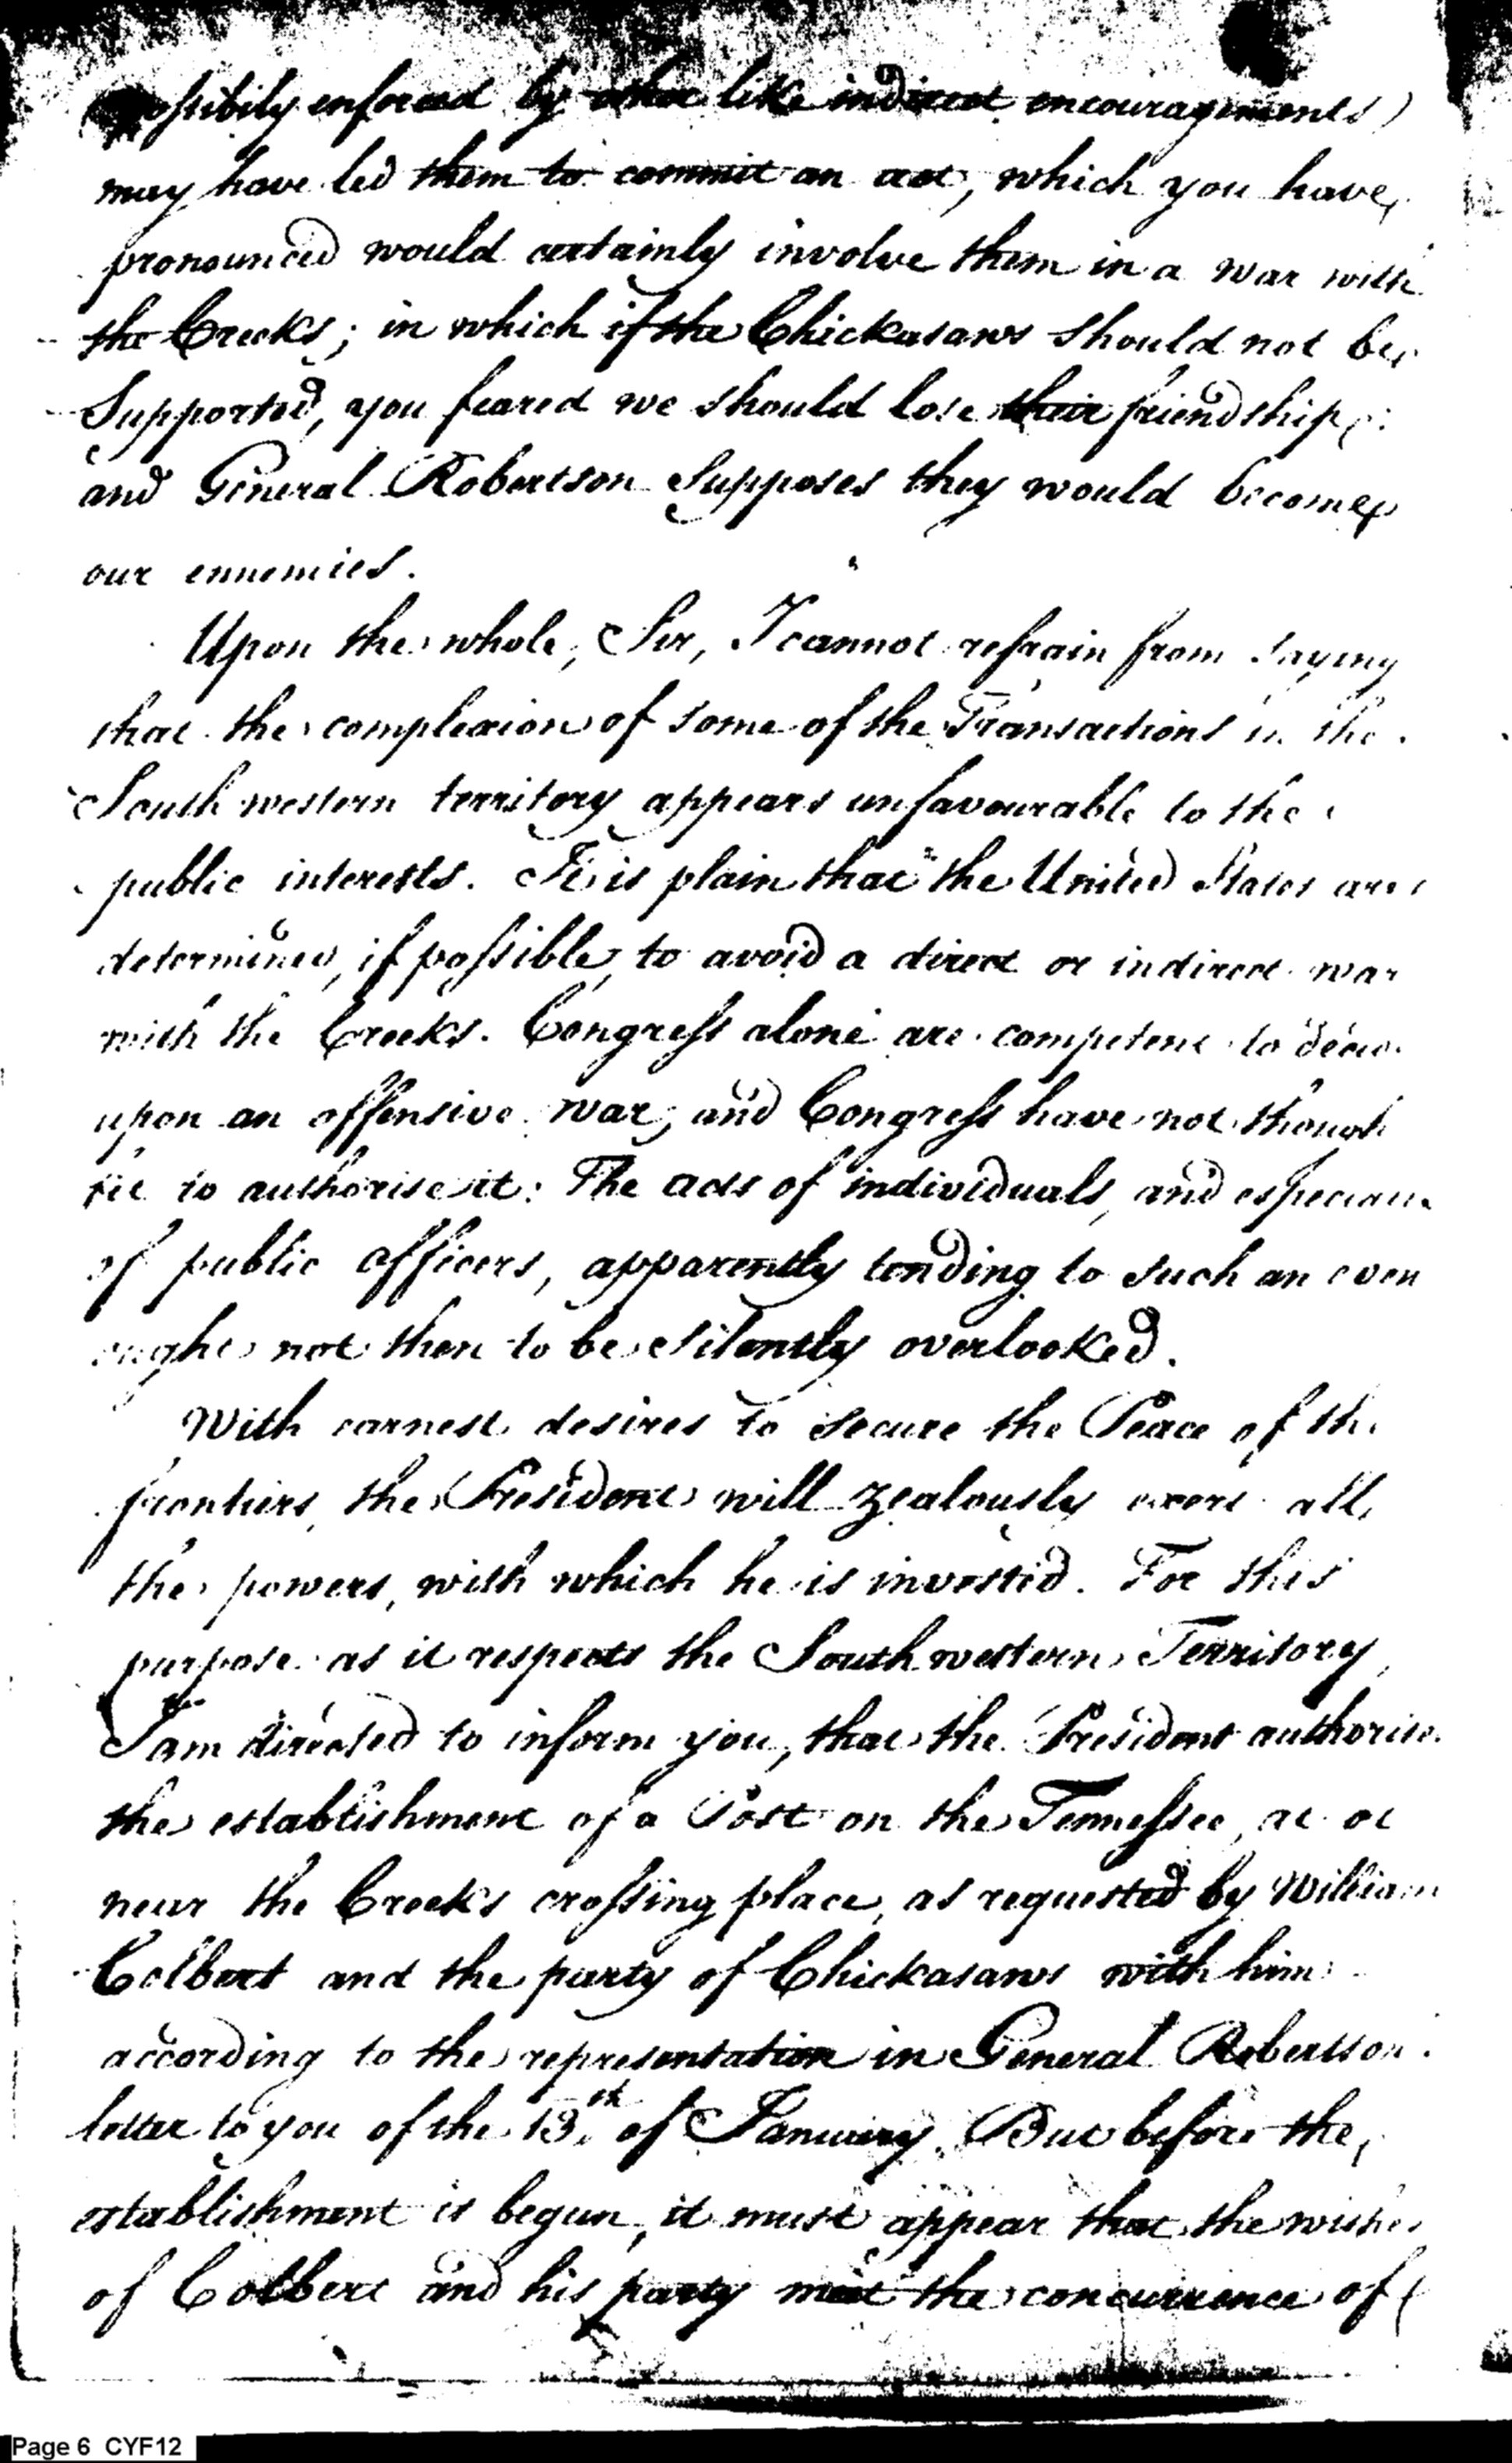 (possibily enforced by other like indirect encouragements)
may have led them to commit an act, which you have
pronounced would certainly involve them in a war with
the Creeks; in which if the Chickasaws should not be
Supported, you feared we should lose their friendship;
and General Robertson Supposes they would become
our ennemies.
Upon the whole, Sir, I cannot refrain from saying
that the complexion of some of the Transactions in the
South western territory appears unfavourable to the
public interests. It is plain that the United States are
determined, if possible, to avoid a direct or indirect war
with the Creeks. Congress alone are competent to
upon an offensive war, and Congress have not though
fit to authorise it: The acts of individuals, and especial
of public officers, apparently tending to such an even
ought not then to be silently overlooked.
With earnest desires to secure the Peace of the
frontiers, the President will zealously exert all
the powers, with which he is invested. For this
purpose as it respects the South western Territory,
I am directed to inform you, that the President authorise
the establishment of a Post on the Tennessee, at or
near the Creeks crossing place, as requested by William
Colbert and the party of Chickasaws with him
according to the representation in General Robertson
letter to you of the 13th of January. But before the
establishment is begun, it must appear that the wishes
of Colbert and his party meet the concurrence of
Page 6 CYF12